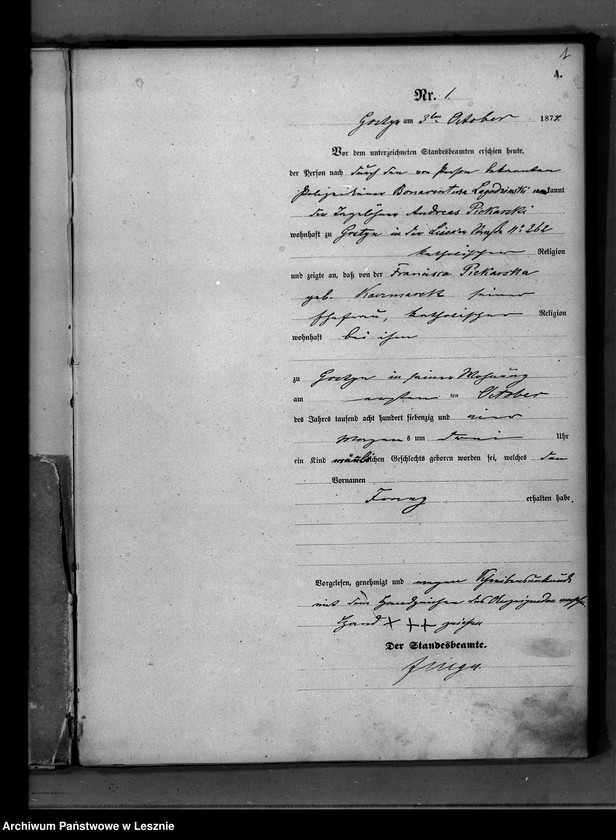 1
4.
Nr. 1.
Gostyn am 3ten October 1874.
Vor dem unterzeichneten Standesbeamten erschien heute,
der Person nach durch den von Person bekannten
Polizeidiener Bonaventura kannt
der Tagelöhner Andreas Piekarski
wohnhaft zu Gostyn in der Lissa'er Straße No 262
katholischer Religion
und zeigte an, daß von der Francisca Piekarska
geb. Kaczmarek seiner
Ehefrau, katholischer Religion
wohnhaft bei ihm
zu Gostyn in seiner Wohnung
am ersten ten October
des Jahres tausend acht hundert siebenzig und vier
Morgens um drei Uhr
ein Kind männlichen Geschlechts geboren worden sei, welches den
Vornamen
Franz erhalten habe.
Vorgelesen, genehmigt und wegen Schreibensunkunde
mit dem Handzeichen des Anzeigenden versehen
Hand
Der Standesbeamte.
Archiwum Państwowe w Lesznie